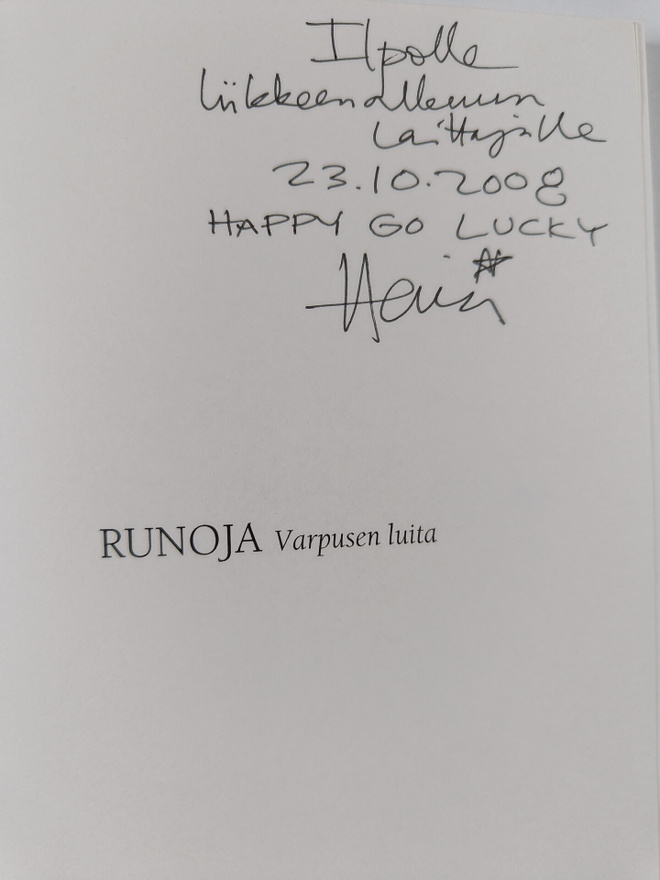 Ilpolle
liikkeenalkuun
laittajalle
23.10.2008
HAPPY GO LUCKY
RUNOJA Varpusen luita